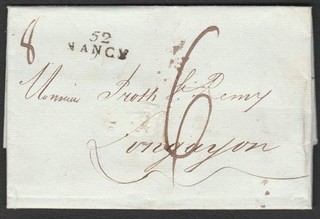 8
52
NANCY
6
Monsieur Proth St Remy
Longuyon